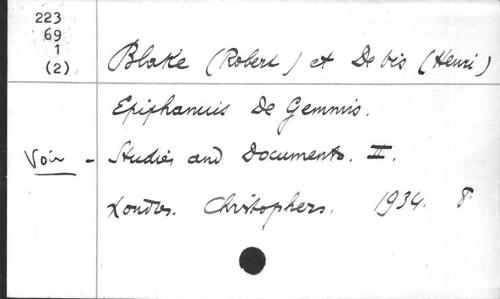 223
69
1
(2)
Blake (Robert) et De bis (Henri)
Epiphanuis De Gemmis.
Voir - Studies and Documents. II.
Londres. Christophers. 1934. 8°